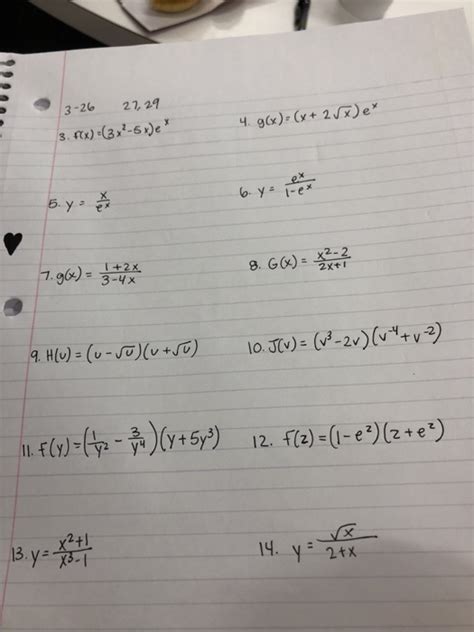 3-26 27, 29
3. f(x)=(3x²-5x)e^x
4. g(x)=(x+2√x)e^x
5. y = x/e^x
6. y = e^x/1-e^x
7. g(x) = 1+2x/3-4x
8. G(x) = x²-2/2x+1
9. H(u) = (u-√u)(u+√u)
10. J(v) = (v³-2v)(v⁻⁴+v⁻²)
11. f(y)=(1/y² - 3/y⁴)(y+5y³)
12. f(z)=(1-e^z)(z+e^z)
13. y= x²+1/x³-1
14. y= √x/2+x